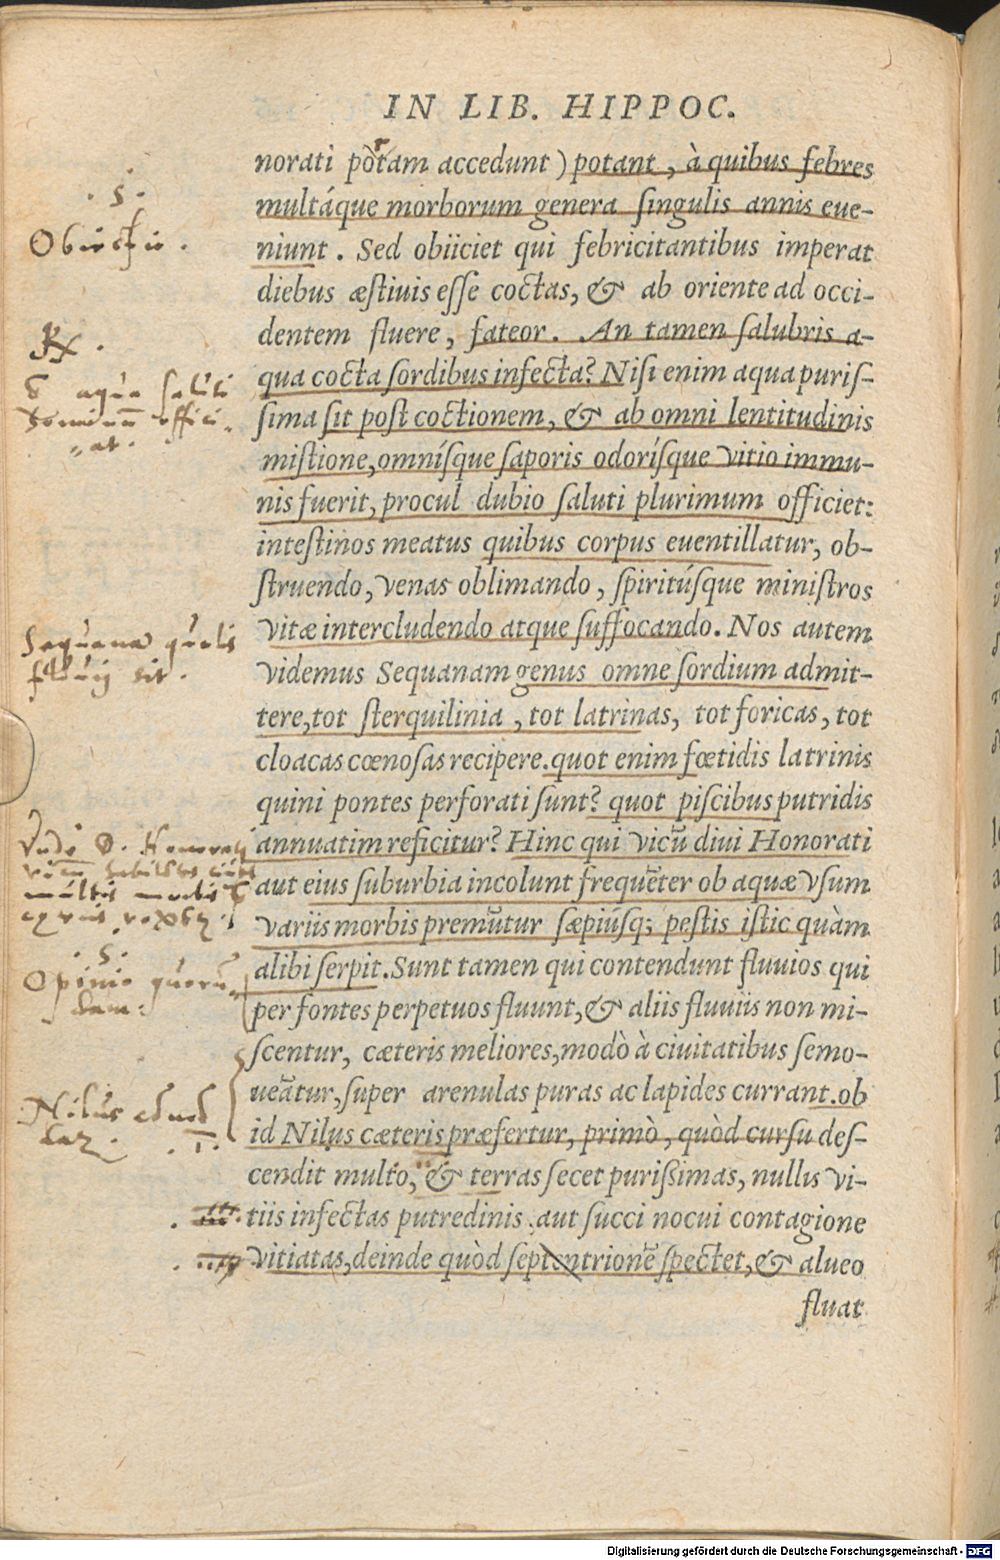 IN LIB. HIPPOC.
norati potam accedunt) potant, à quibus febres
multáque morborum genera singulis annis eue-
niunt. Sed obiiciet qui febricitantibus imperat
diebus æstiuis esse coctas, & ab oriente ad occi-
dentem fluere, fateor. An tamen salubris a-
qua cocta sordibus infecta? Nisi enim aqua puris-
sima sit post coctionem, & ab omni lentitudinis
mistione, omnísque saporis odorísque vitio immu-
nis fuerit, procul dubio saluti plurimum officiet:
intestinos meatus quibus corpus euentillatur, ob-
struendo, venas oblimando, spiritúsque ministros
vitæ intercludendo atque suffocando. Nos autem
videmus Sequanam genus omne sordium admit-
tere, tot sterquilinia, tot latrinas, tot foricas, tot
cloacas cœnosas recipere. quot enim fœtidis latrinis
quini pontes perforati sunt? quot piscibus putridis
annuatim reficitur? Hinc qui vicū diui Honorati
aut eius suburbia incolunt frequēter ob aquæ vsum
variis morbis premūtur sæpiusq; pestis istic quàm
alibi serpit. Sunt tamen qui contendunt fluuios qui
per fontes perpetuos fluunt, & aliis fluuiis non mi-
scentur, cæteris meliores, modò à ciuitatibus semo-
ueātur, super arenulas puras ac lapides currant. ob
id Nilus cæteris præfertur, primò, quòd cursu des-
cendit multo, & terras secet purissimas, nullis vi-
tiis infectas putredinis, aut succi nocui contagione
vitiatas, deinde quòd septentrionē spectet, & alueo
fluat
. S .
Obiectio .
Rx .
aqua saluti
offici-
at .
Sequana qualis
fluuij sit .
. S .
Opinio quorun-
dam :
Nilus
Digitalisierung gefördert durch die Deutsche Forschungsgemeinschaft - DFG